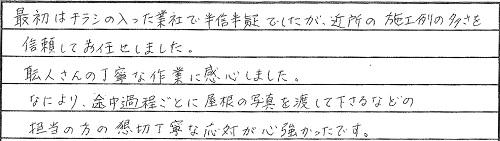 最初はチラシの入った業社で半信半疑でしたが、近所の施工例の多さを
信頼してお任せしました。
職人さんの丁寧な作業に感心しました。
なにより、途中過程ごとに屋根の写真を渡して下さるなどの
担当の方の懇切丁寧な応対が心強かったです。